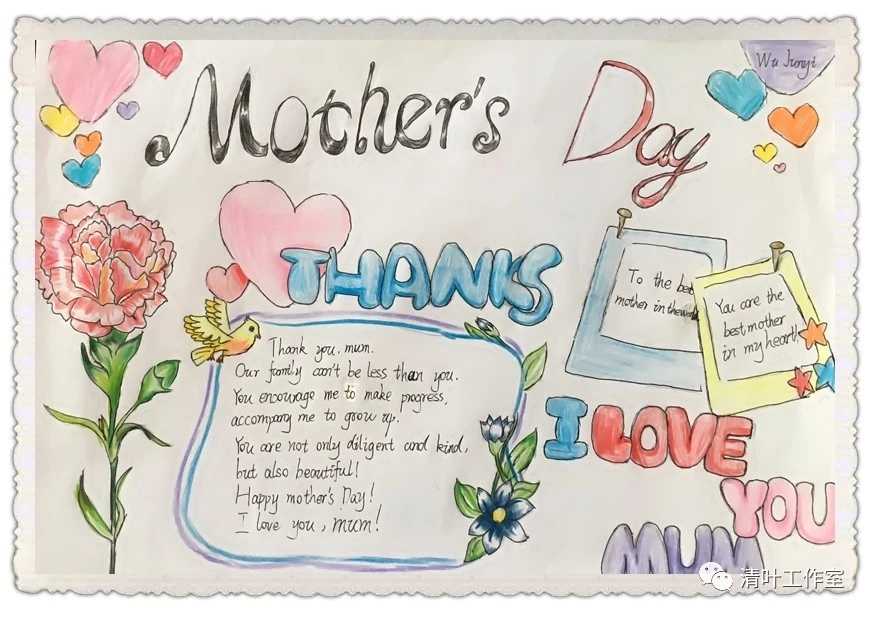 Mother's Day
Wu Junyi
THANKS
Thank you, mum.
Our family can't be less than you.
You encourage me to make progress,
accompany me to grow up.
You are not only diligent and kind,
but also beautiful!
Happy mother's Day!
I love you, mum!
To the best
mother in the world
You are the
best mother
in my heart!
I LOVE
YOU
MUM
清叶工作室